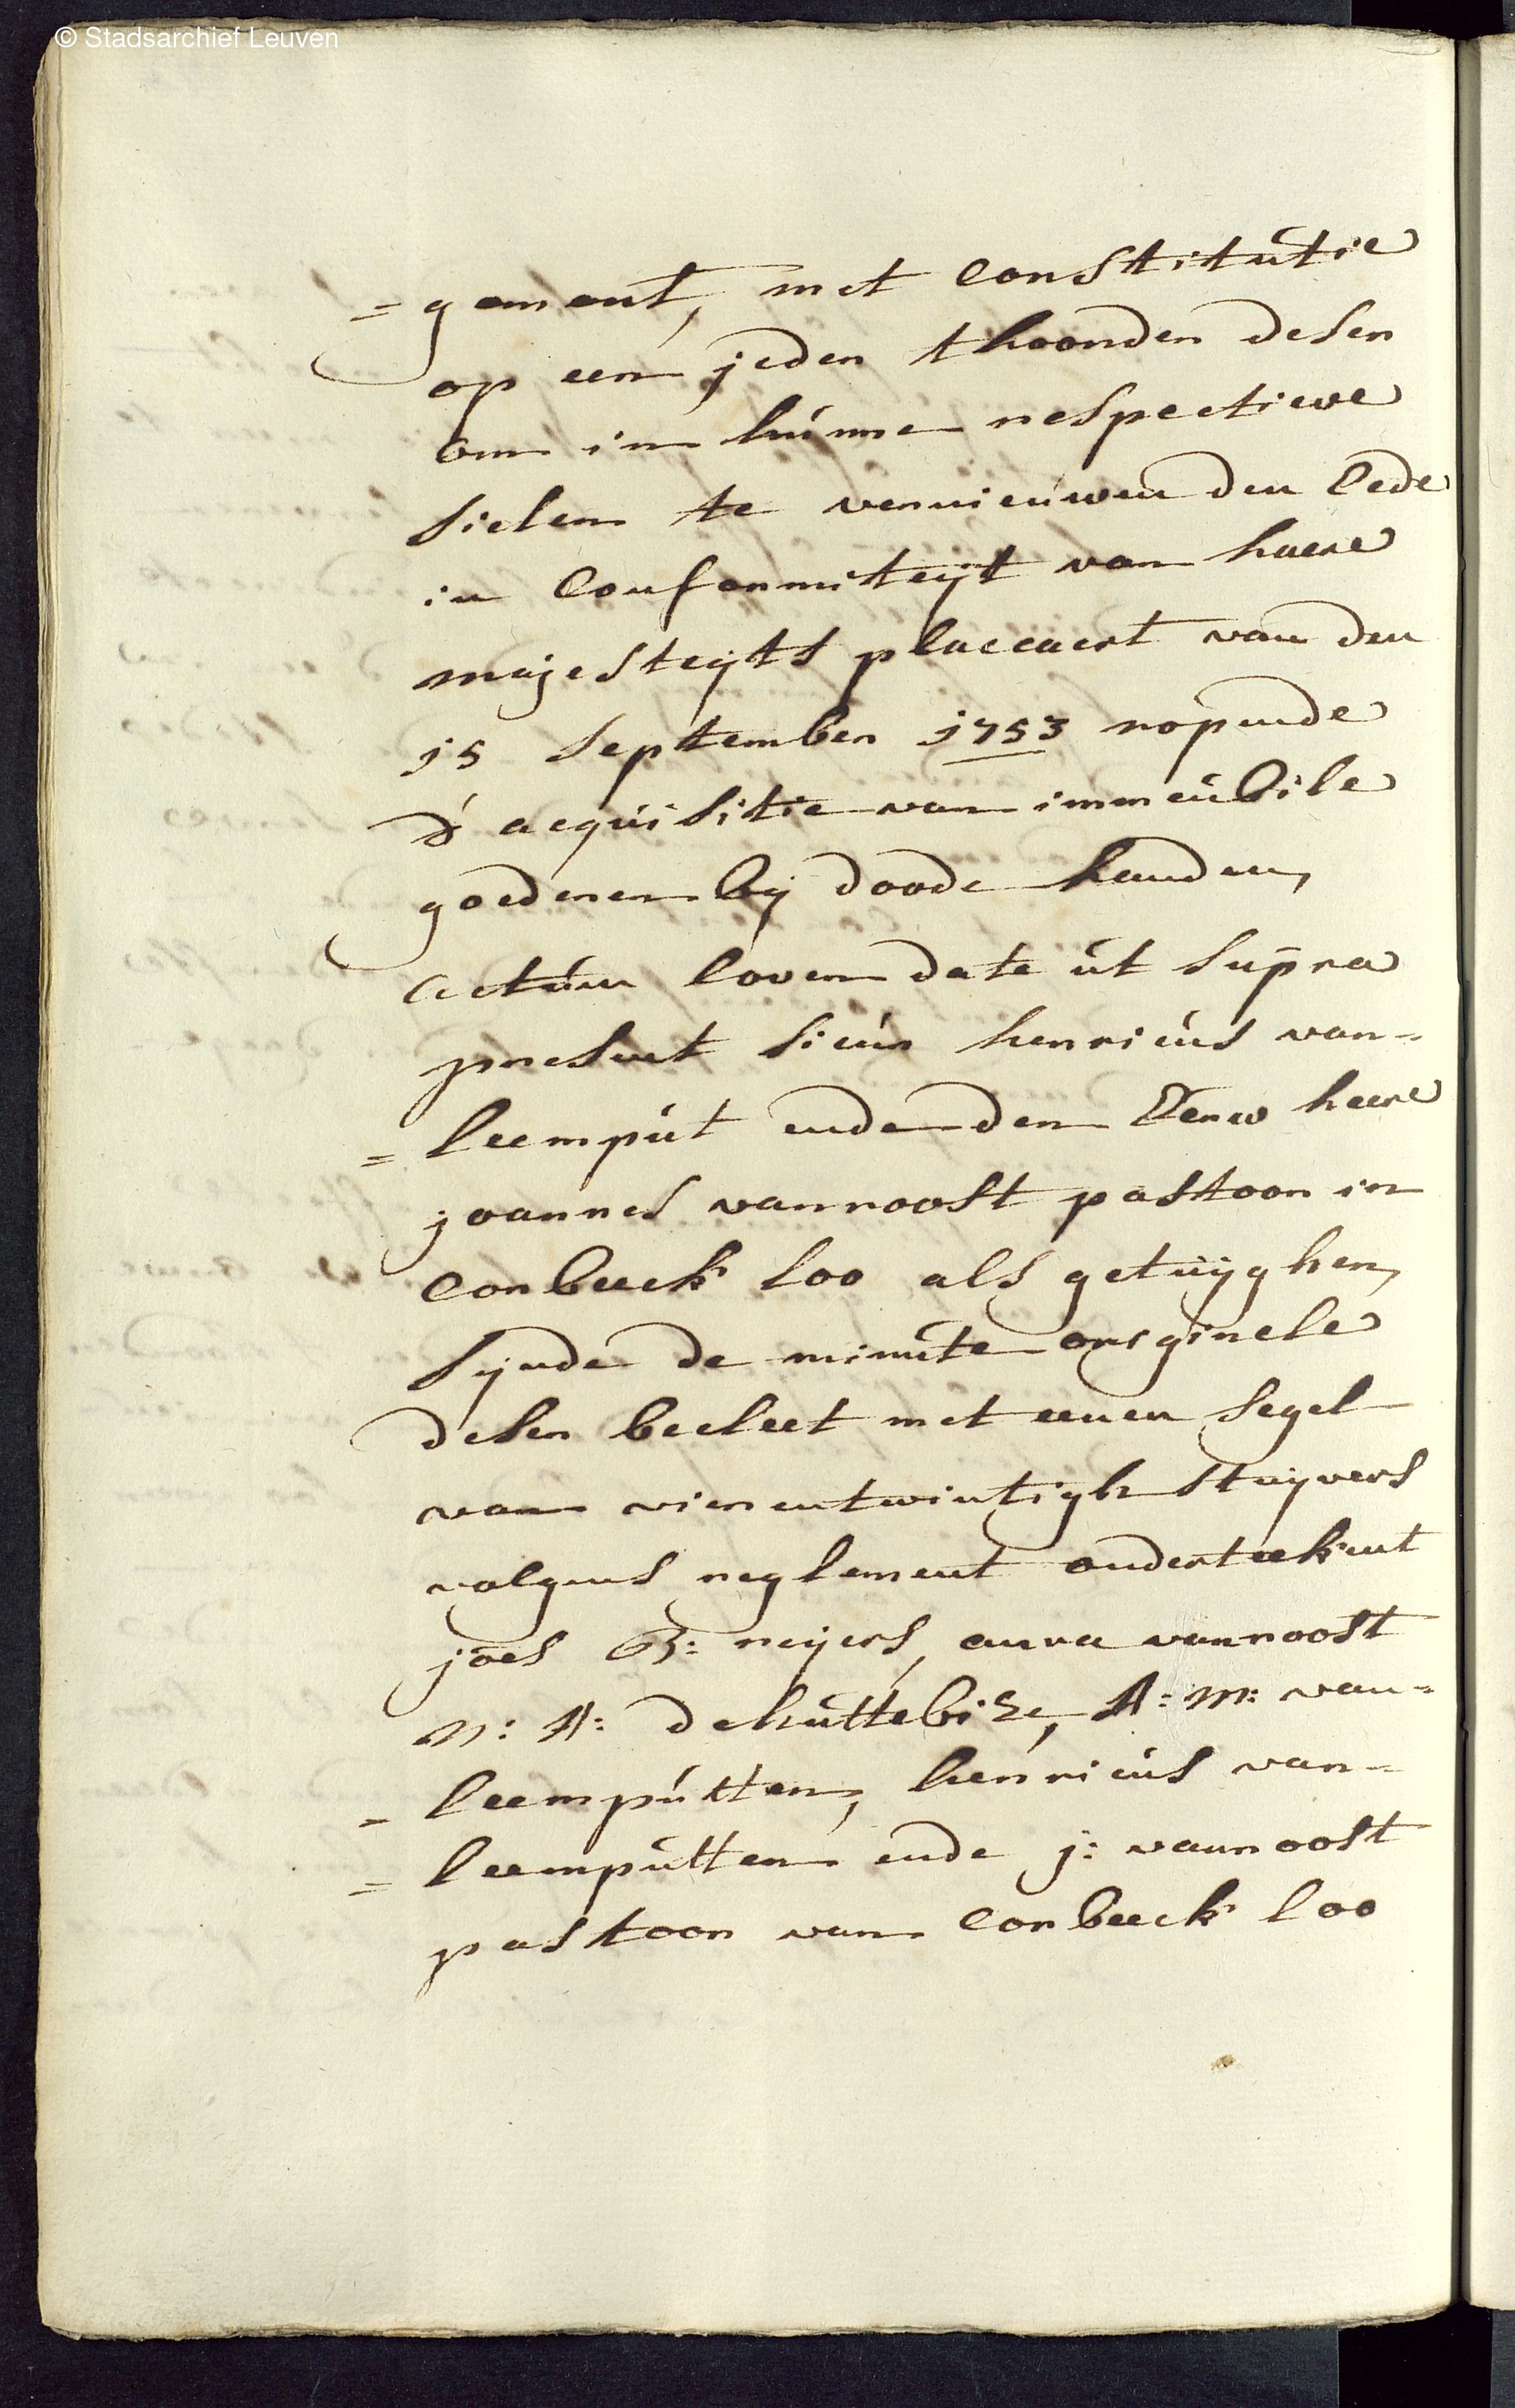 © Stadsarchief Leuven
=gement, met Constitutie
op een jeden thoonder deser
om in hunne respectieve
sielen te vernieuwen den Eede
in Conformiteijt van haere
majesteijts placcaert van den
15 September 1753 nopende
d' acquisitie van immeubile
goederen bij doode handen,
Actúm loven date út súpra
present sieúr henricús van-
=leempút ende den Eerw heere
joannes vanroost pastoor in
Corbeeck loo als getúijghen,
sijnde de minúte originele
deser becleet met eenen segel
van vierentwintigh stuijvers
volgens reglement onderteekent
joês B: meijers, anna vanroost
N: A: dehúttebize, A: M: van-
=leempútten, henricús van-
=leempútten ende j: vanroost
pastoor van Corbeeck loo